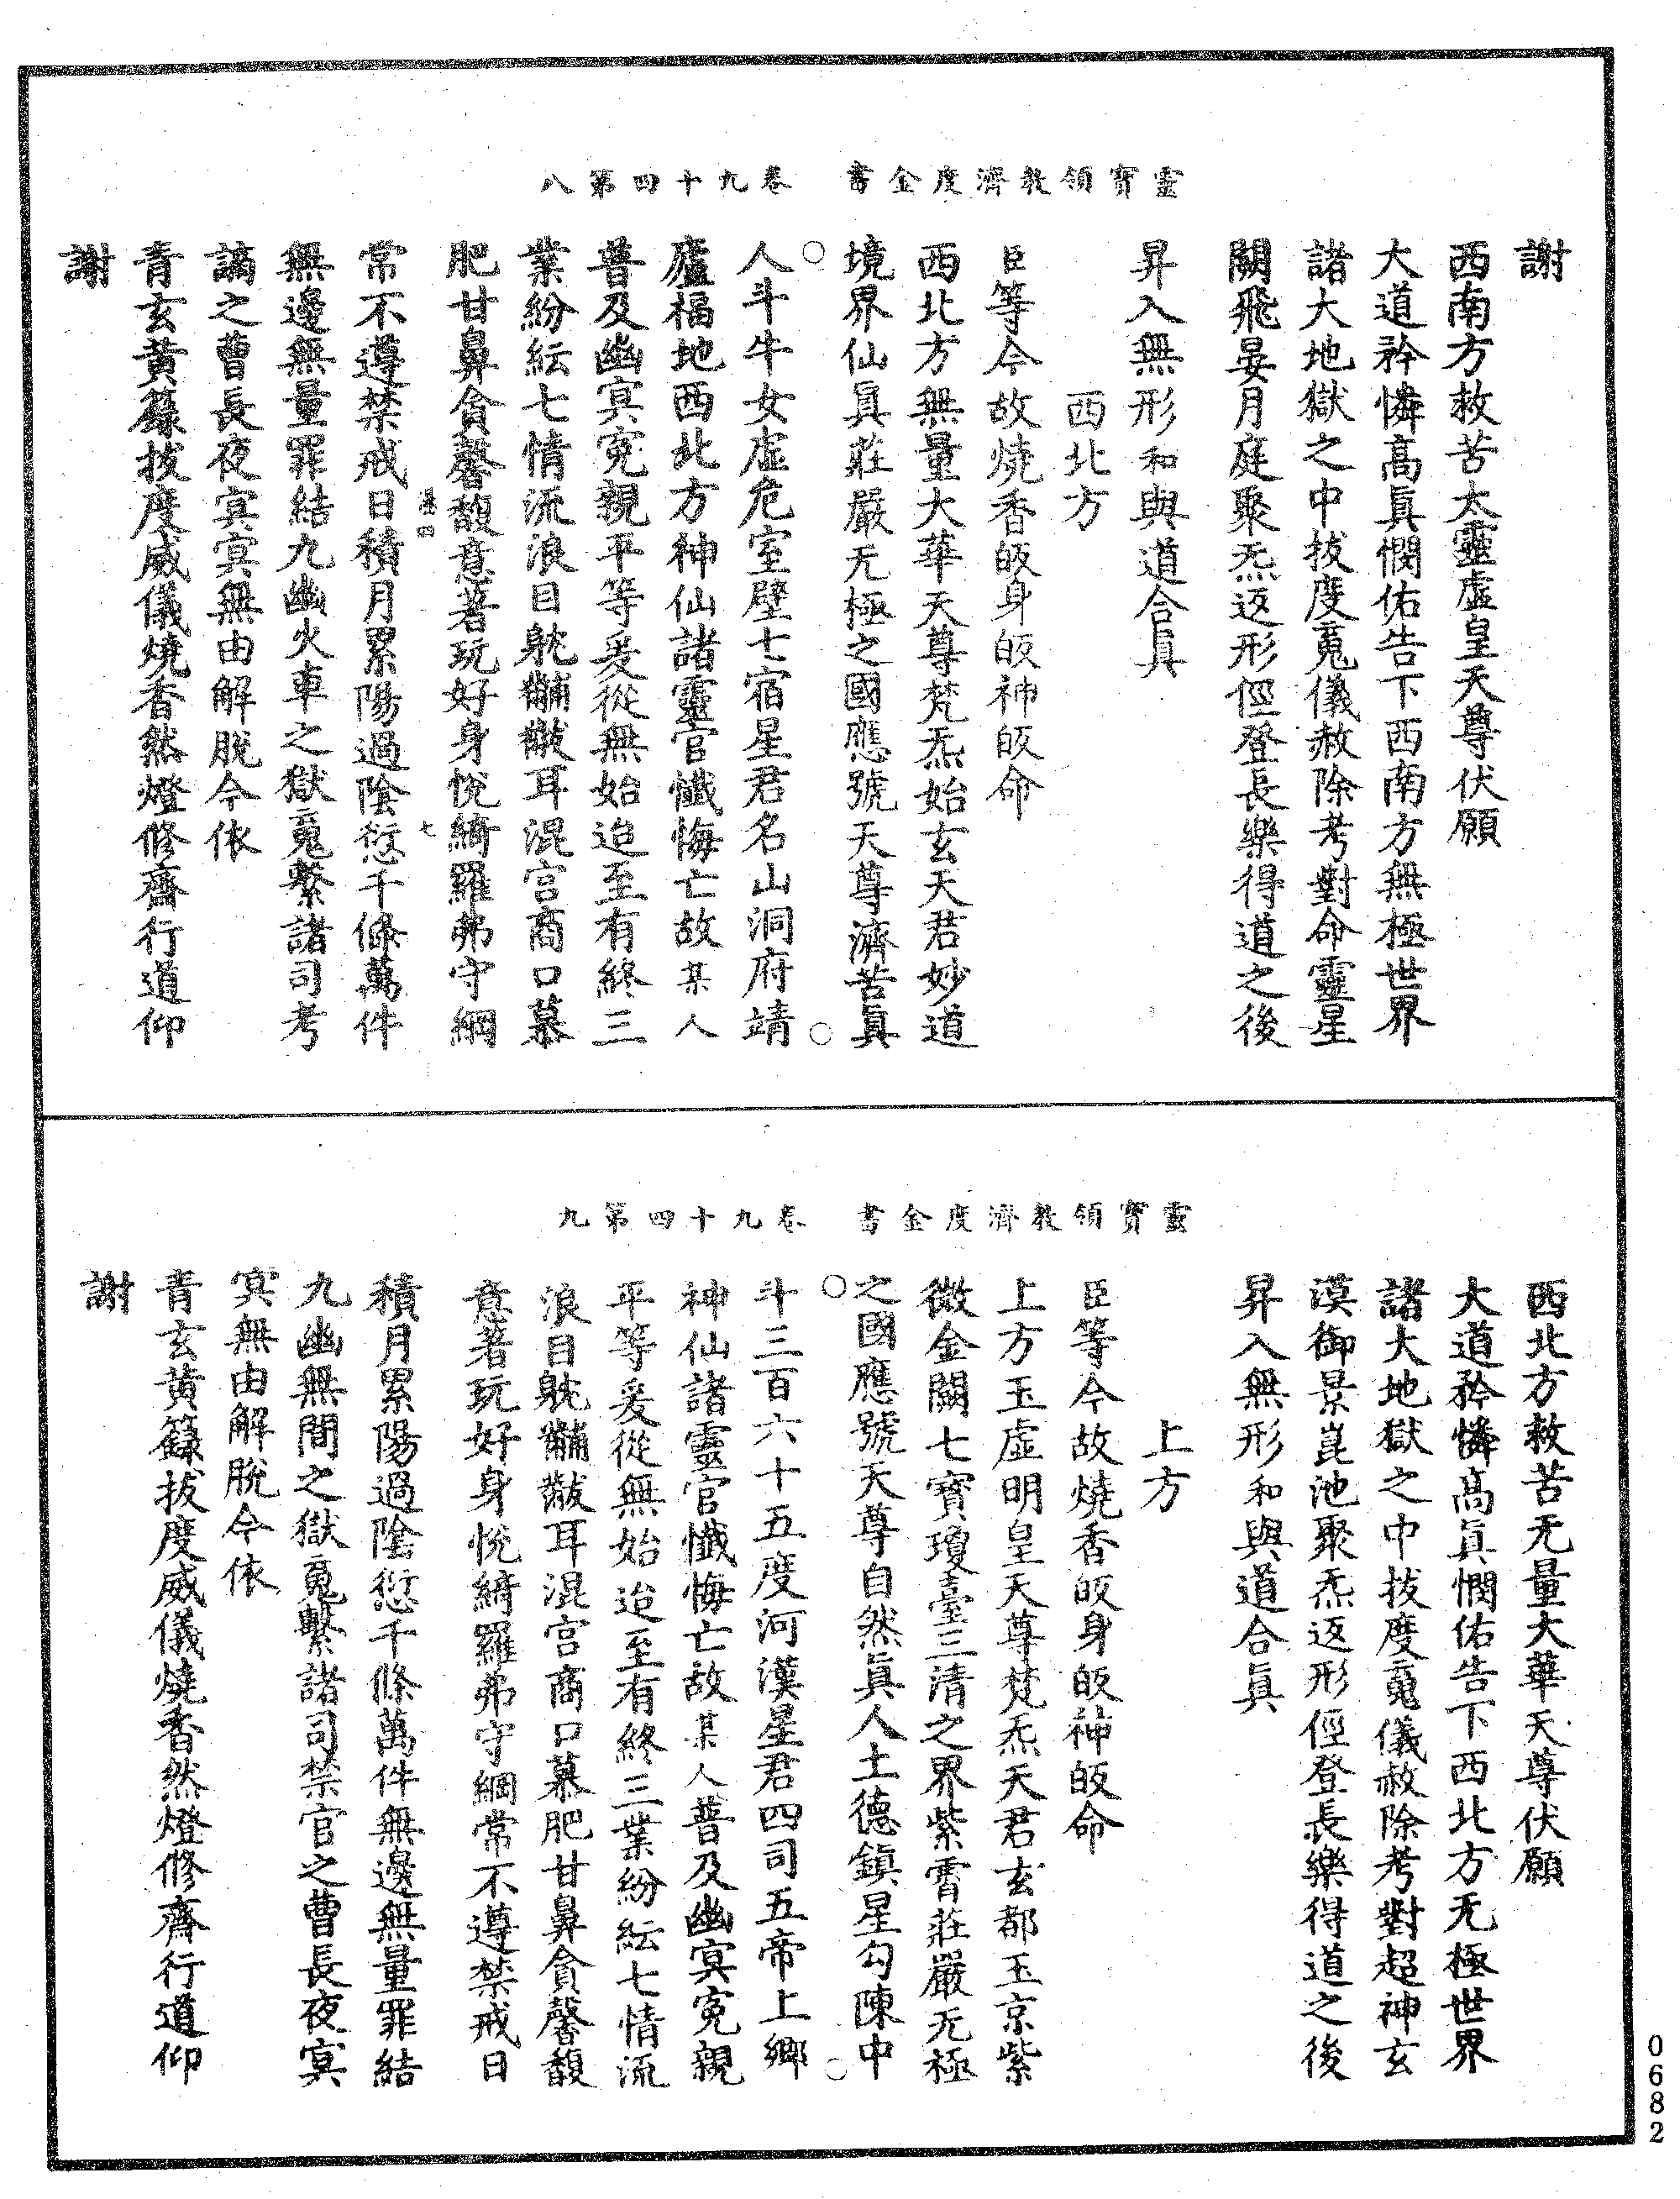 靈寶領教濟度金書　卷九十四第八
謝
西南方救苦太靈虛皇天尊伏願
大道矜憐高眞憫佑告下西南方無極世界
諸大地獄之中拔度䰟儀赦除考對命靈星
闕飛晏月庭聚炁返形俓登長樂得道之後
昇入無形和與道合眞
西北方
臣等今故燒香皈身皈神皈命
西北方無量大華天尊梵炁始玄天君妙道
境界仙眞莊嚴无極之國應號天尊濟苦眞
人斗牛女虛危室壁七宿星君名山洞府靖
廬福地西北方神仙諸靈官懺悔亡故某人
普及幽冥寃親平等爰從無始迨至有終三
業紛紜七情流浪目躭黼黻耳混宮商口慕
肥甘鼻貪馨馥意著玩好身悅綺羅弗守綱
常不遵禁戒日積月累陽過陰愆千條萬件
無邊無量罪結九幽火車之獄䰟繫諸司考
謫之曹長夜冥冥無由解脫今依
青玄黃籙拔度威儀燒香然燈修齋行道仰
謝
靈寶領教濟度金書　卷九十四第九
西北方救苦无量大華天尊伏願
大道矜憐高眞憫佑告下西北方无極世界
諸大地獄之中拔度䰟儀赦除考對超神玄
漠御景崑池聚炁返形俓登長樂得道之後
昇入無形和與道合眞
上方
臣等今故燒香皈身皈神皈命
上方玉虛明皇天尊梵炁天君玄都玉京紫
微金闕七寳瓊臺三清之界紫霄莊嚴无極
之國應號天尊自然眞人土德鎮星勾陳中
斗三百六十五度河漢星君四司五帝上鄉
神仙諸靈官懺悔亡故某人普及幽冥寃親
平等爰從無始迨至有終三業紛紜七情流
浪目躭黼黻耳混宮商口慕肥甘鼻貪馨馥
意著玩好身悅綺羅弗守綱常不遵禁戒日
積月累陽過陰愆千條萬件無邊無量罪結
九幽無間之獄䰟繫諸司禁官之曹長夜冥
冥無由解脫今依
青玄黃籙拔度威儀燒香然燈修齋行道仰
謝
0682